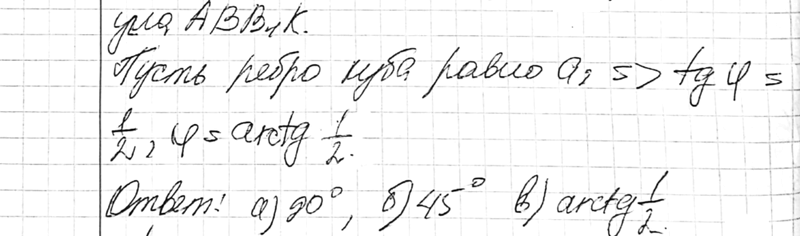 угла ABB₁K.
Пусть ребро куба равно a, => tg φ =
1/2, φ = arctg 1/2.
Ответ: а) 90°, б) 45° в) arctg 1/2.